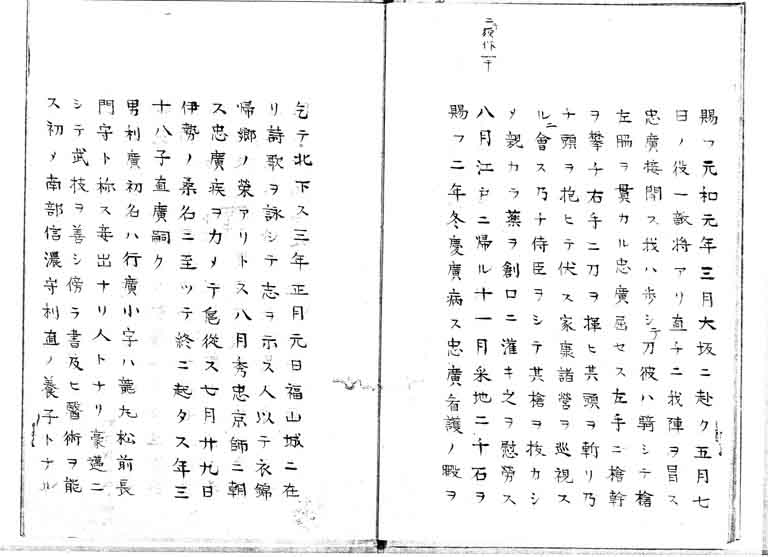 賜フ元和元年三月大坂ニ赴ク五月七
日ノ役一敵将アリ直チニ我陣ヲ冒ス
忠廣接閧ス我ハ歩シテ刀彼ハ騎シテ槍
左脇ヲ貫カル忠廣屈セス左手ニ槍幹
ヲ攀チ右手ニ刀ヲ揮ヒ其頭ヲ斬リ乃
チ頭ヲ抱ヒテ伏ス家康諸營ヲ巡視ス
ルニ會ス乃チ侍臣ヲシテ其槍ヲ抜カシ
メ親カラ薬ヲ創口ニ灌キ之ヲ慰勞ス
八月江戸ニ帰ル十一月釆地二千石ヲ
賜フ二年冬慶廣病ス忠廣看護ノ暇ヲ
乞テ北下ス三年正月元日福山城ニ在
リ詩歌ヲ詠シテ志ヲ示ス人以テ衣錦
帰郷ノ榮アリトス八月秀忠京師ニ朝
ス忠廣疾ヲカメテ扈從ス七月廿九日
伊勢ノ桑名ニ至ツテ終ニ起タス年三
十八子直廣嗣ク
男利廣初名ハ行廣小字ハ竜九松前長
門守ト称ス妾出ナリ人トナリ豪邁ニ
シテ武技ヲ善シ傍ラ書及ヒ醫術ヲ能
ス初メ南部信濃守利直ノ養子トナル